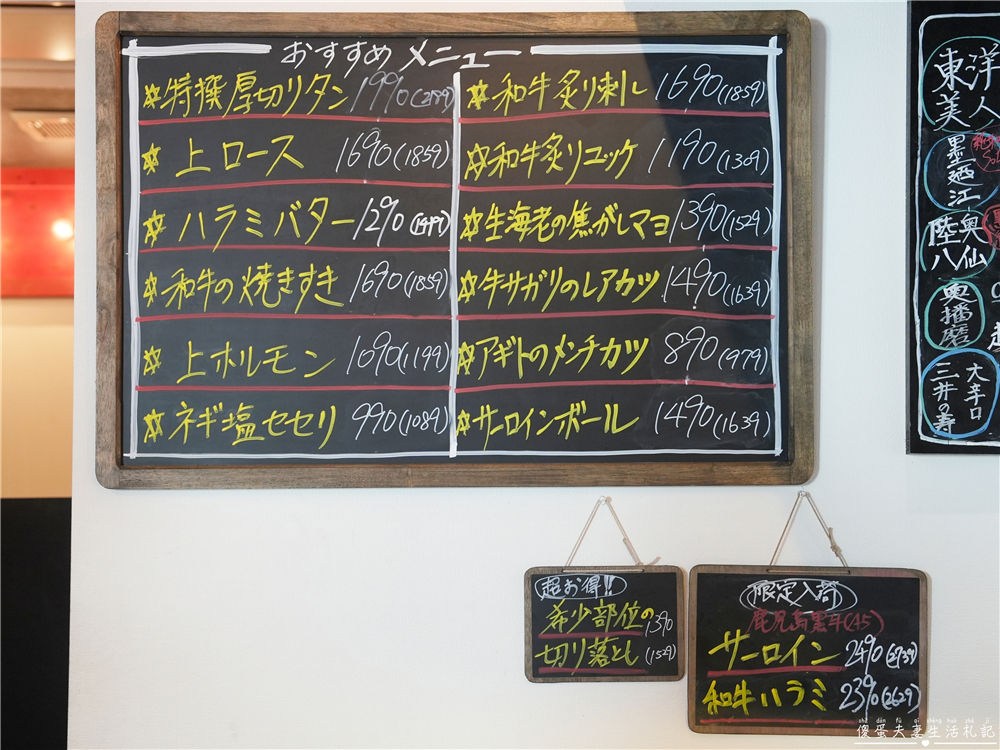 おすすめメニュー
☆特撰厚切りタン 1990(2189)
☆上ロース 1690(1859)
☆ハラミバター 1290(1419)
☆和牛の焼きすき 1690(1859)
☆上ホルモン 1090(1199)
☆ネギ塩セセリ 990(1089)
☆和牛炙り刺し 1690(1859)
☆和牛炙りユッケ 1190(1309)
☆生海老の焦がしマヨ 1390(1529)
☆牛サガリのレアカツ 1490(1639)
☆アギトのメンチカツ 890(979)
☆サーロインボール 1490(1639)
東洋
美人
墨廼江
陸奥
八仙
奥播磨
大辛口
三井の寿
超お得!!
希少部位の 1390
切り落とし (1529)
限定入荷
鹿児島黒牛(A5)
サーロイン 2490(2739)
和牛ハラミ 2390(2629)
shǎ dàn fū qī shēng huó zhá jì
傻蛋夫妻生活札記